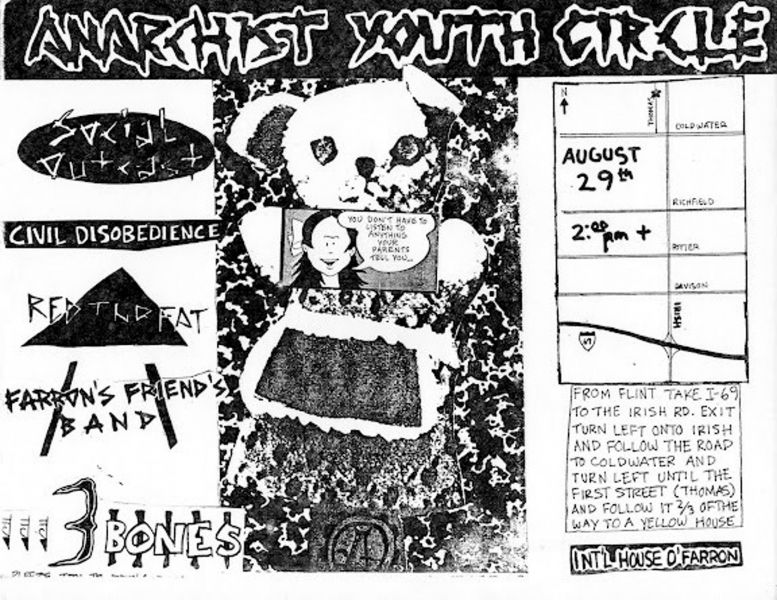 ANARCHIST YOUTH CIRCLE
Social
Outcast
CIVIL DISOBEDIENCE
RED FAT
FARRON'S FRIEND'S
BAND
3 BONES
YOU DON'T HAVE TO
LISTEN TO
ANYTHING
YOUR
PARENTS
TELL YOU...
N
THOMAS
COLDWATER
AUGUST
29th
RICHFIELD
2:00
pm +
POTTER
DAVISON
IRISH
69
FROM FLINT TAKE I-69
TO THE IRISH RD. EXIT
TURN LEFT ONTO IRISH
AND FOLLOW THE ROAD
TO COLDWATER AND
TURN LEFT UNTIL THE
FIRST STREET (THOMAS)
AND FOLLOW IT 2/3 OF THE
WAY TO A YELLOW HOUSE
INT'L HOUSE O' FARRON